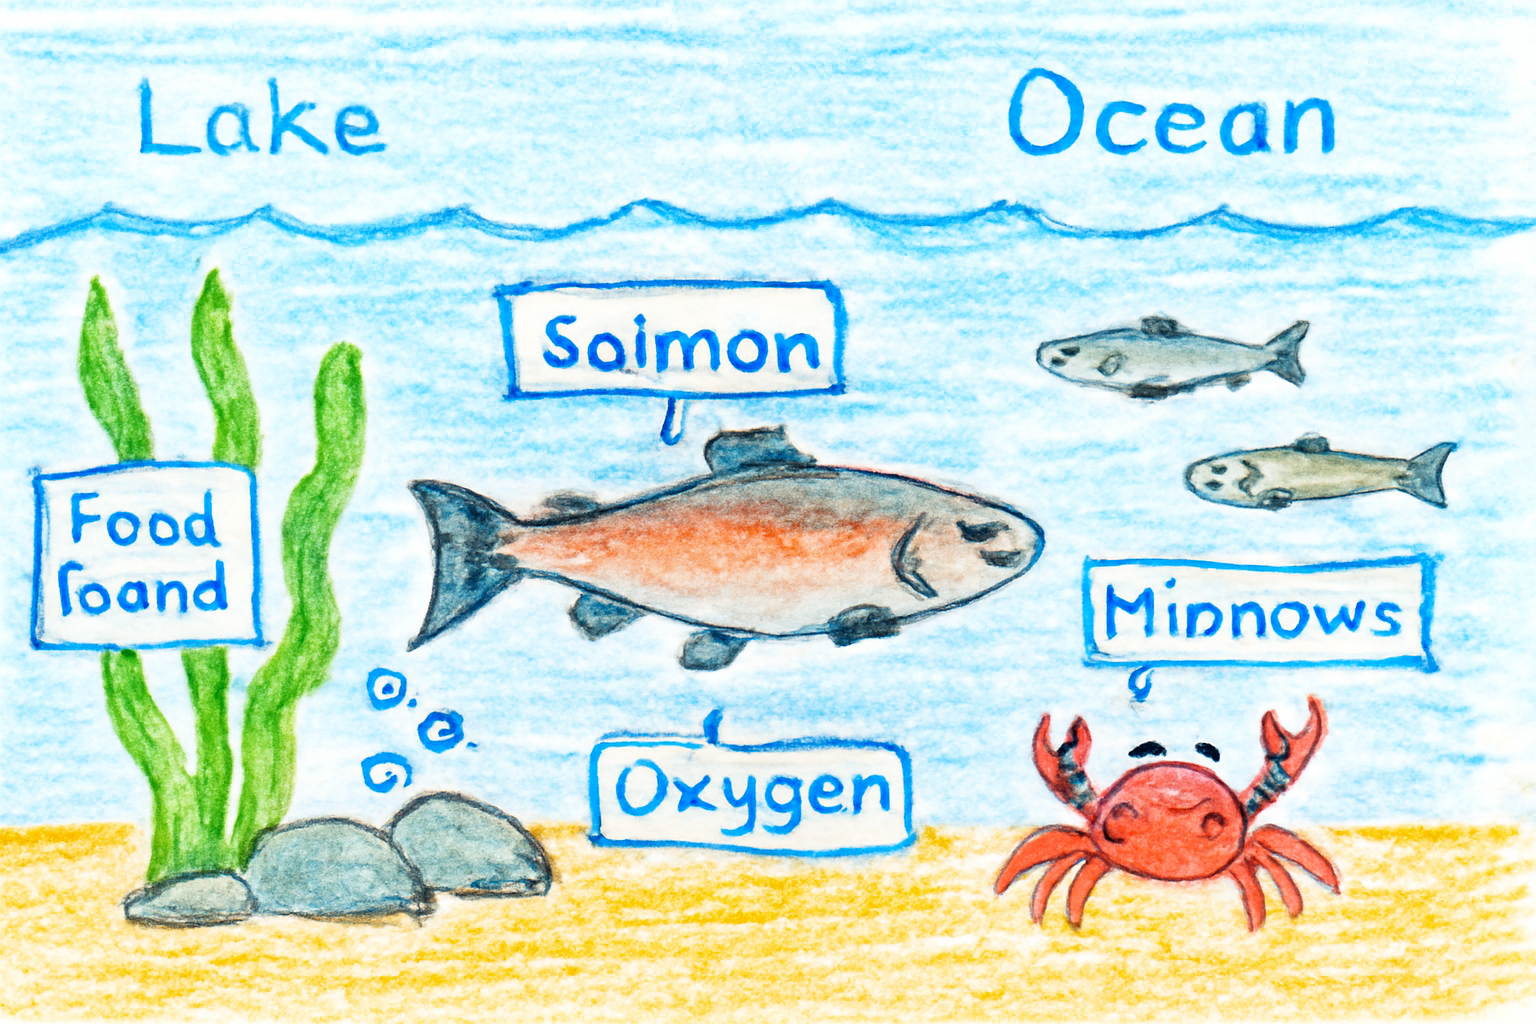 Lake
Ocean
Soimon
Food
foand
Minnows
Oxygen